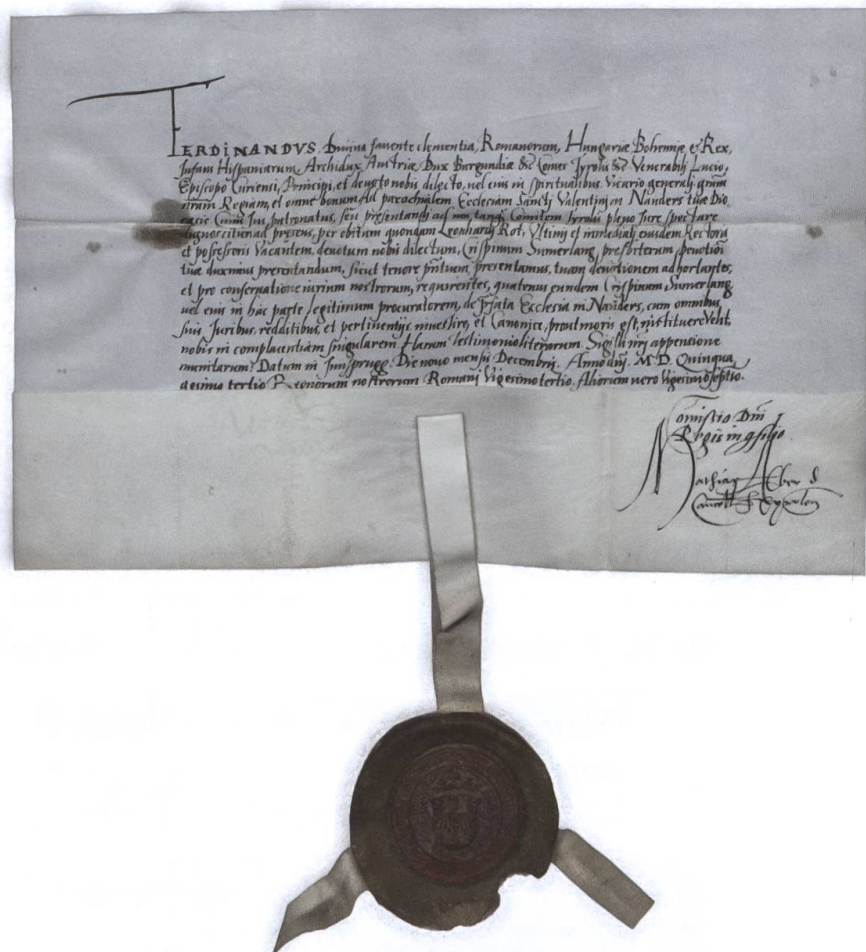 FERDINANDVS. Divina favente clementia, Romanorum, Hungariæ Bohemiæ &c Rex,
Infans Hispaniarum, Archidux Austriæ Dux Burgundiæ &c Comes Tyrolis &c Venerabili Lucio,
Episcopo Curiensi, Principi, et devoto nobis dilecto, vel eius in spiritualibus Vicario generali gratiam
nostram Regiam, et omne bonum. Ad parochialem Ecclesiam Sancti Valentini in Nauders tuæ Dio
cesis Cuius Jus patronatus, seu presentandi ad nos tanquam Comitem Tyrolis pleno Jure spectare
dignoscitur ad presens, per obitum quondam Leonhardi Rot, Vltimi et immediati eiusdem Rectoris
et possessoris Vacantem, devotum nobis dilectum, Crispinum Sumerlang, presbiterum, devotioni
tuæ duximus presentandum, sicut tenore presentium, presentamus, tuam devotionem adhortantes,
et pro conservatione iurium nostrorum, requirentes, quatenus eundem Crispinum Sumerlang,
vel eius in hac parte legitimum procuratorem, de prefata Ecclesia in Nauders, cum omnibus,
suis Juribus, redditibus, et pertinentijs investire, et Canonice, prout moris est, instituere Velit,
nobis in complacentiam singularem Harum Testimonio literarum. Sigilli nostri appensione
munitarum. Datum in Jnnsprugg. Die nono mensis Decembris. Anno dni. M. D. Quinqua
gesimo tertio Regnorum nostrorum Romani Vigesimotertio. Aliorum vero Vigesimoseptio.
Comissio Dni
Regis in
Mathias Alber D